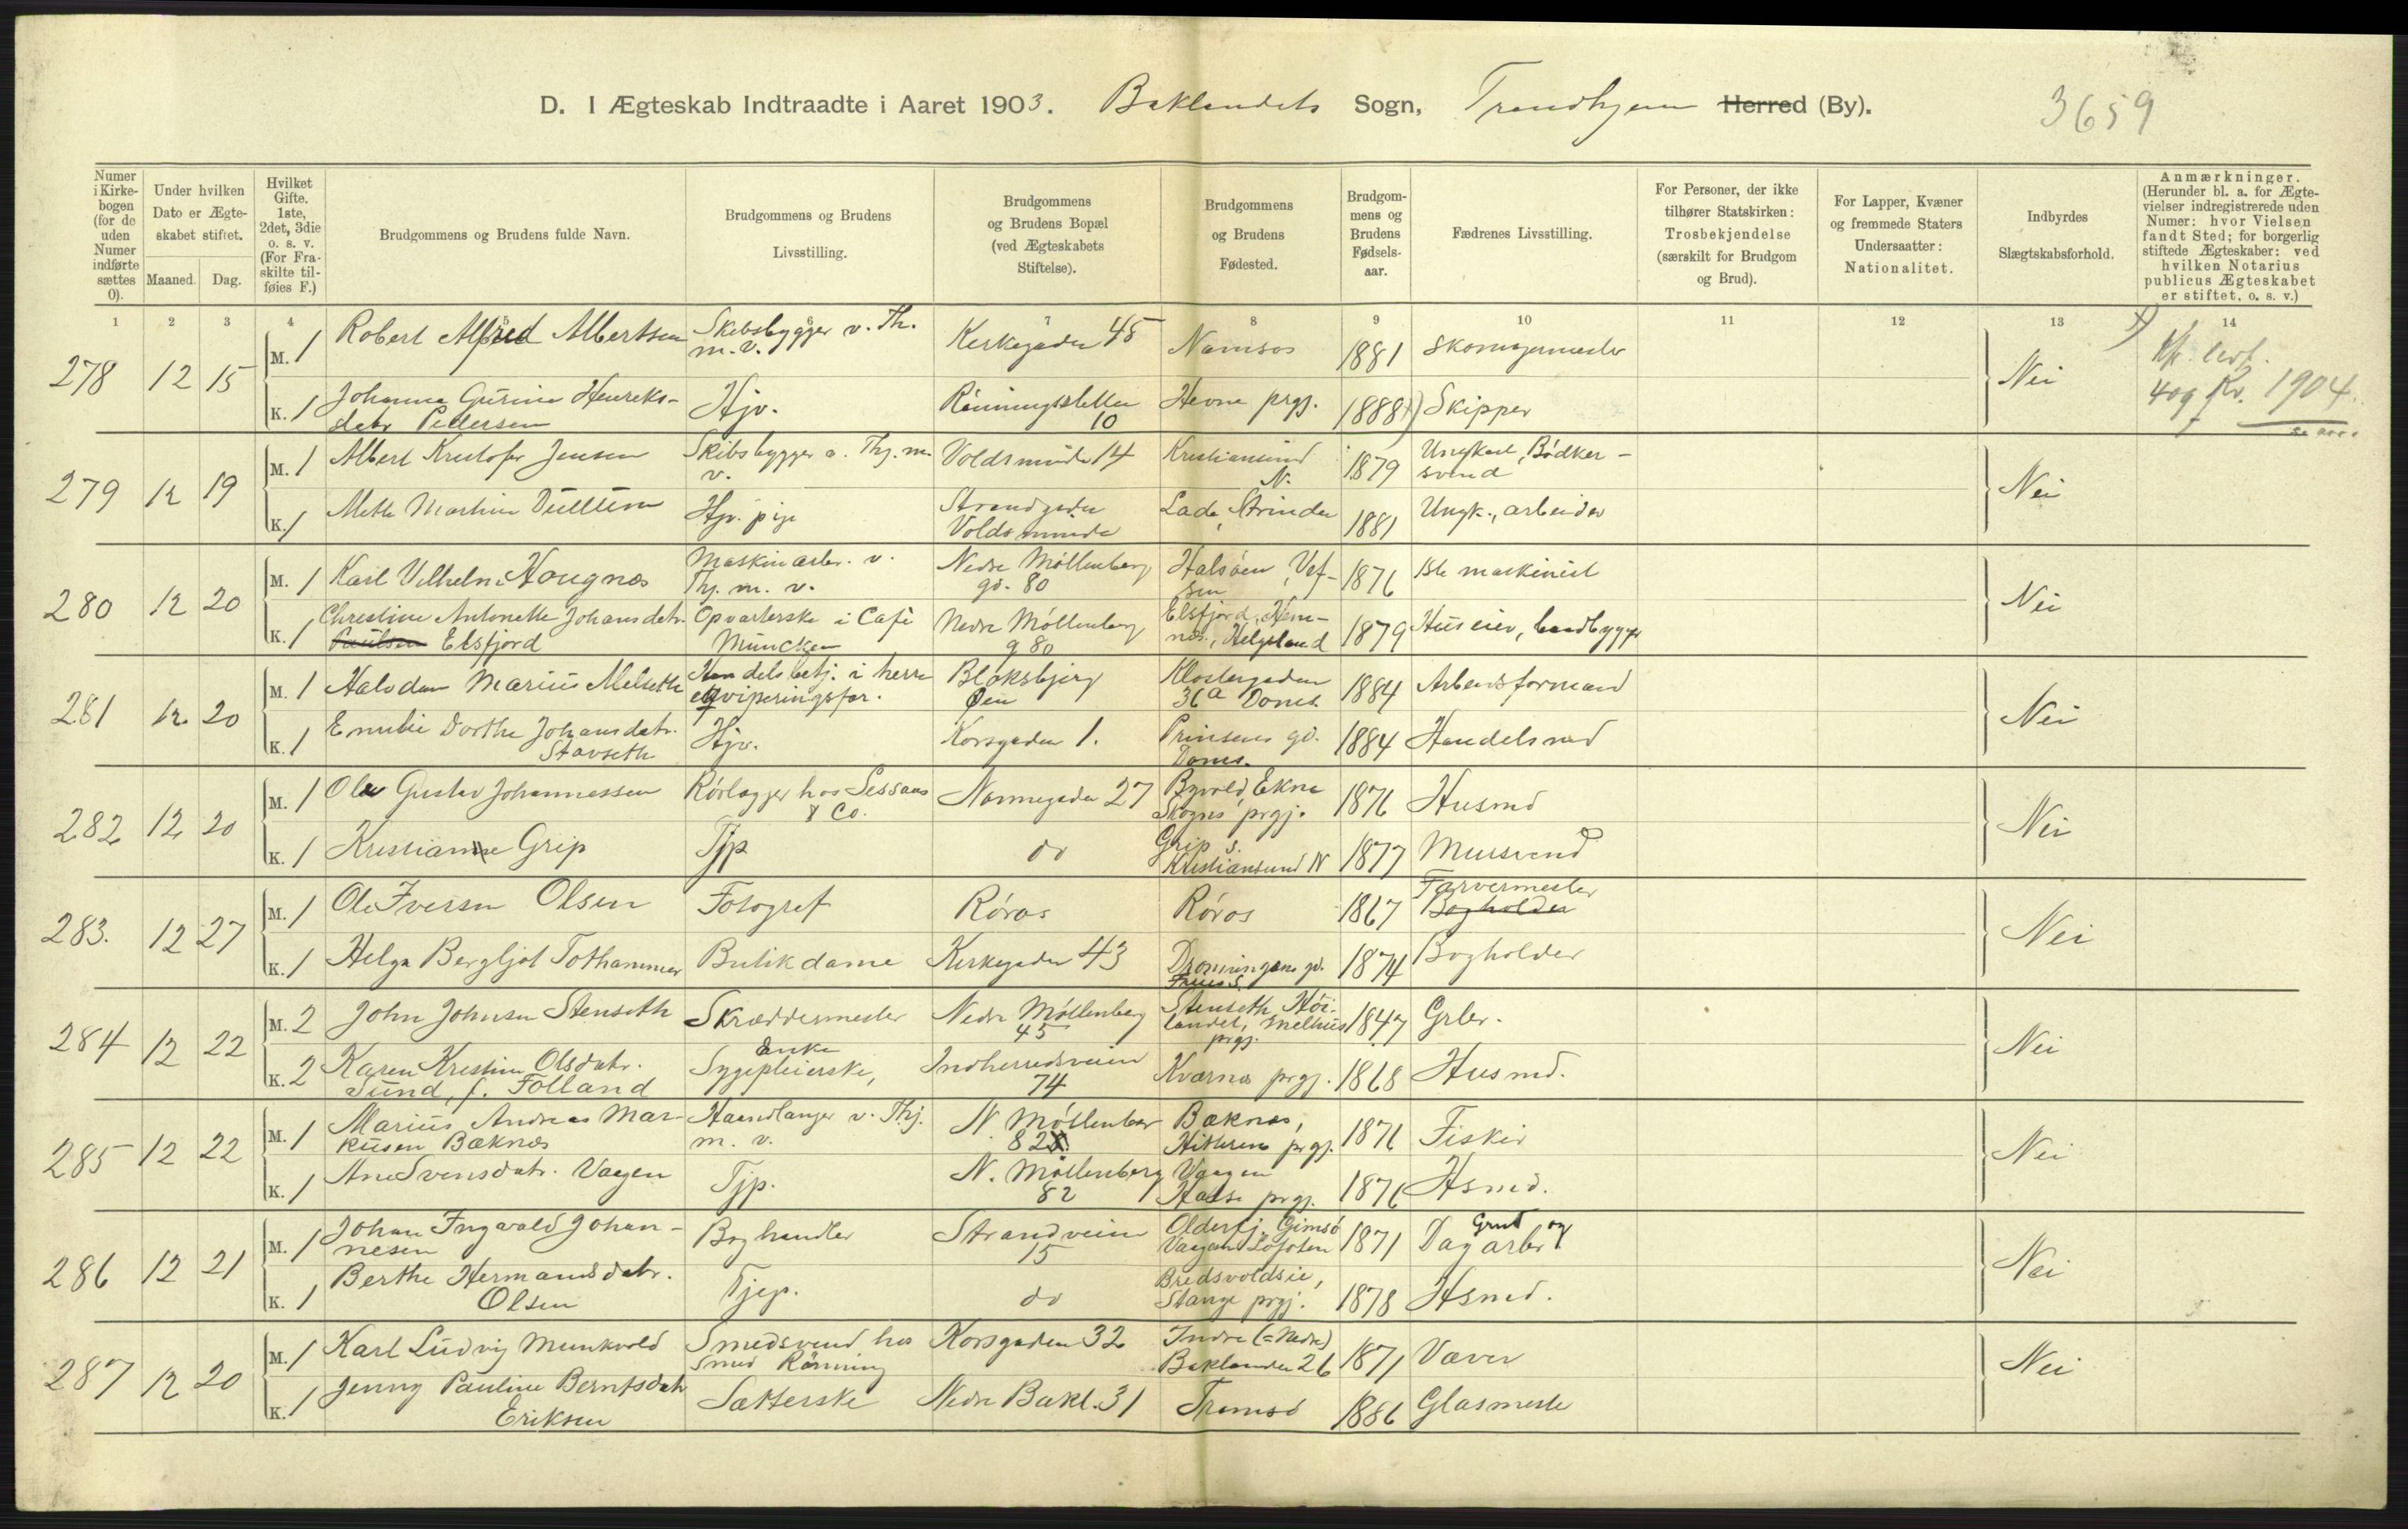 D. I Ægteskab Indtraadte i Aaret 1903. Baklandets Sogn, Trondhjem Herred (By).
3659
Numer i Kirkebogen (for de uden Numer indførte sættes 0).
Under hvilken Dato er Ægteskabet stiftet.
Maaned. Dag.
Hvilket Gifte. 1ste, 2det, 3die o. s. v. (For Fraskilte tilføies F.)
Brudgommens og Brudens fulde Navn.
Brudgommens og Brudens Livsstilling.
Brudgommens og Brudens Bopæl (ved Ægteskabets Stiftelse).
Brudgommens og Brudens Fødested.
Brudgommens og Brudens Fødselsaar.
Fædrenes Livsstilling.
For Personer, der ikke tilhører Statskirken: Trosbekjendelse (særskilt for Brudgom og Brud).
For Lapper, Kvæner og fremmede Staters Undersaatter: Nationalitet.
Indbyrdes Slægtskabsforhold.
Anmærkninger. (Herunder bl. a. for Ægtevielser indregistrerede uden Numer: hvor Vielsen fandt Sted; for borgerlig stiftede Ægteskaber: ved hvilken Notarius publicus Ægteskabet er stiftet, o. s. v.)
1 2 3 4 5 6 7 8 9 10 11 12 13 14
278 12 15 M. 1 Robert Alfred Albertsen Skibsbygger v. Th. m. v. Kirkegaden 45 Namsos 1881 Skomagermester Nei
K. 1 Johanna Gurine Henreksdatr Pedersen Hjv. Rønningsletten 10 Hevne prgj. 1888 Skipper
409 1904
279 12 19 M. 1 Albert Kristofer Jensen Skibsbygger v. Thj. m. v. Voldsminde 14 Kristiansund N. 1879 Ungkarl, Bødkersvend Nei
K. 1 Mette Martine Hjv. pige Strandgaden Voldsminde Lade, Strinden 1881 Ungk., arbeider
280 12 20 M. 1 Karl Vilhelm Haugnæs Maskinarbr. v. Thj. m. v. Nedre Møllenberg gd. 80 Halsøen, Vefsen 1876 1ste maskinist Nei
K. 1 Christine Antonette Johansdatr. Paulsen Elsfjord Opvarterske i Café Müncken Nedre Møllenberg g 80 Elsfjord, Hemnes, Helgeland 1879 Huseier, baadbygger
281 12 20 M. 1 Halvdan Marius Melseth Handelsbetj. i herreeqviperingsfor. Bloksbjerg Øen Klostergaden 36a Doms. 1884 Arbeidsformand Nei
K. 1 Emilie Dorthe Johansdatr. Stavseth Hjv. Korsgaden 1. Prinsens gd. Doms. 1884 Handelsmd
282 12 20 M. 1 Olav Gustav Johannessen Rørlægger hos & Co. Nonnegaden 27 Byvold, Ekne Skogns prgj. 1876 Husmd Nei
K. 1 Kristianne Grip Tjp do Grip s. Kristiansund N 1877 Mursvend
283. 12 27 M. 1 Ole Iversen Olsen Fotograf Røros Røros 1867 Farvermester Bogholder Nei
K. 1 Helga Bergljot Tothammer Butikdame Kirkegaden 43 Dronningens gd. Frues. 1874 Bogholder
284 12 22 M. 2 John Johnsen Stenseth Skræddermester Nedre Møllenberg 45 Stenseth, Høilandet, Melhus prgj. 1847 Grbr. Nei
K. 2 Karen Kristine Olsdatr. Sund, f. Folland Enke Sygepleierske, Indherredsveien 74 Kværnes prgj. 1868 Husmd.
285 12 22 M. 1 Marius Andreas Markusen Bæknæs Haandlanger v. Thj. m. v. N. Møllenberg 82 Bæknæs, Hitteren prgj. 1876 Fisker Nei
K. 1 Ane Svensdatr. Vaagen Tjp. N. Møllenberg 82 Vaagen Halse prgj. 1876 Hsmd.
286 12 21 M. 1 Johan Ingvald Johannesen Boghandler Strandveien 15 Olderfj. Gimsø Vaagan Lofoten 1871 Grmd og Dagarbr Nei
K. 1 Berthe Hermansdatr. Olsen Tjep. do Bredsvoldsie, Stange prgj. 1878 Hsmd.
287 12 20 M. 1 Karl Ludvig Munkvold Smedsvend hos Smed Rønning Korsgaden 32 Indre (= Nedre) Baklandet 26 1871 Væver Nei
K. 1 Jenny Pauline Berntsdatr Eriksen Sætterske Nedre Bakl. 31 Tromsø 1886 Glasmester